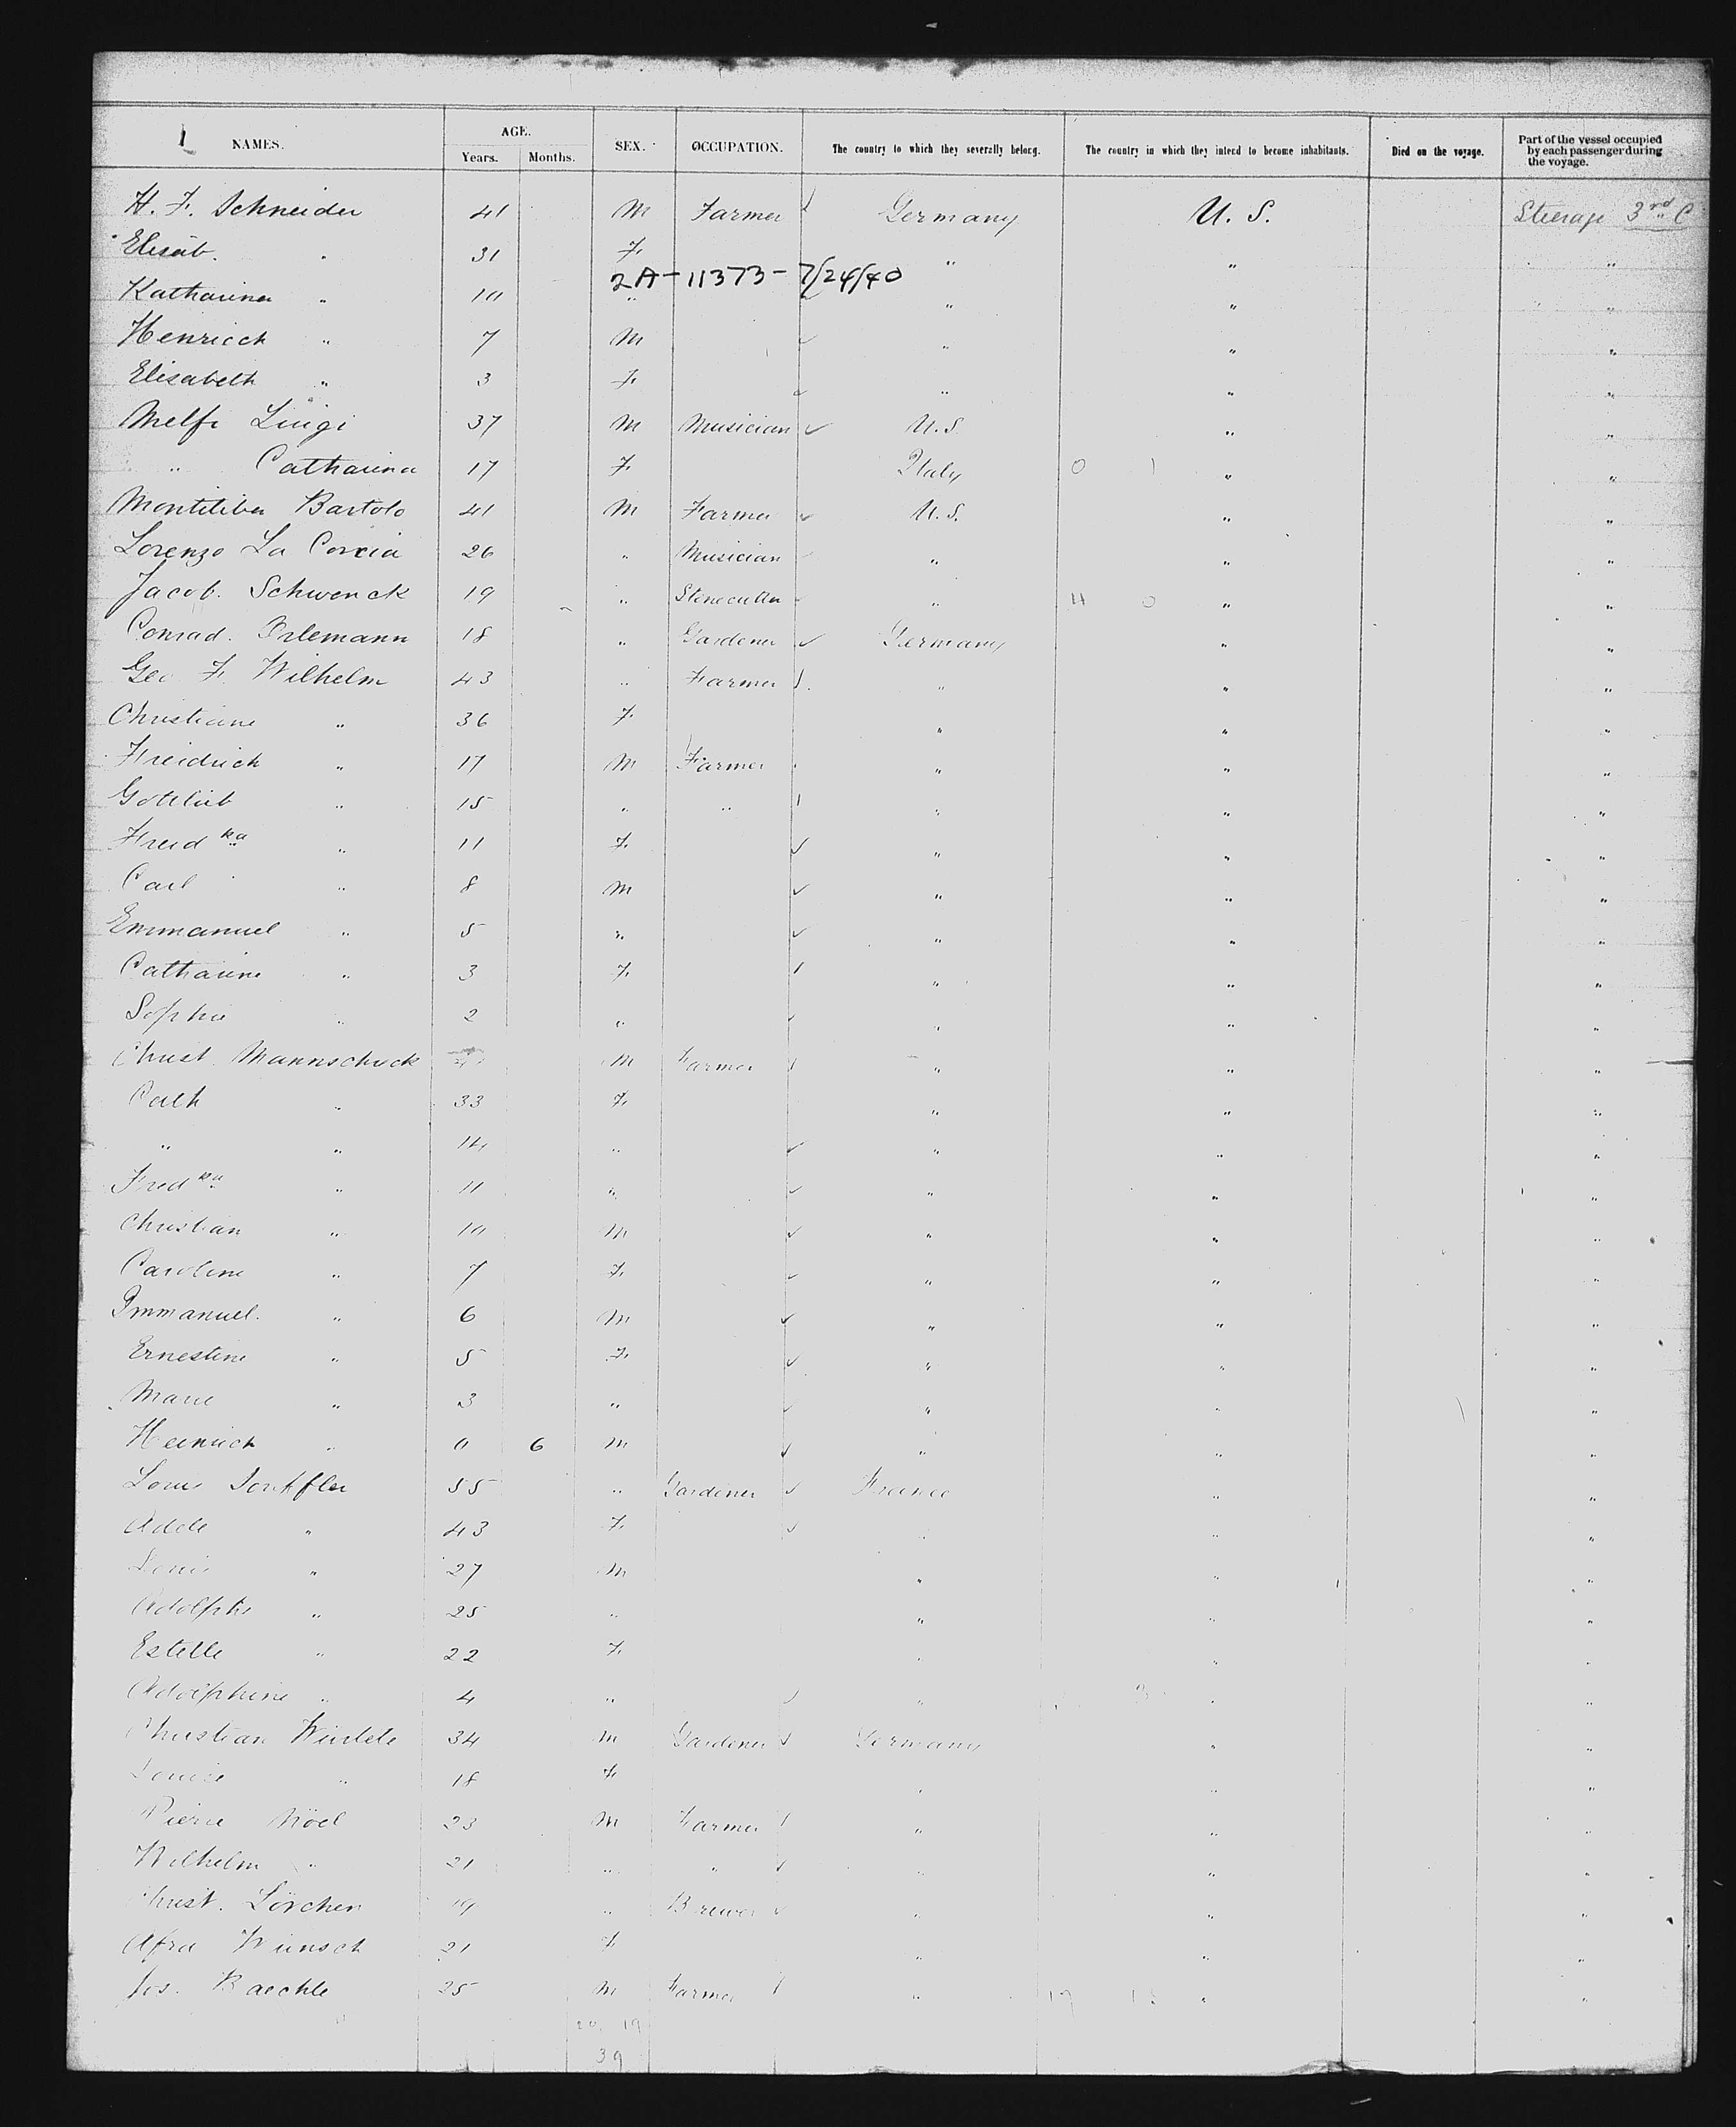 NAMES. AGE. Years. Months. SEX. OCCUPATION. The country to which they severally belong. The country in which they intend to become inhabitants. Died on the voyage. Part of the vessel occupied by each passenger during the voyage.
H. F. Schneider 41 M Farmer Germany U. S. Steerage 3rd C
Elisab. " 31 F. " " "
2A-11373-7/24/40
Katharina " 10 " " " "
Henrich " 7 M " " "
Elisabeth " 3 F. " " "
Melfi Luigi 37 M Musician U.S. " "
" Catharina 17 F. Italy 0 1 " "
Bartolo 41 M Farmer U.S. " "
Lorenzo La 26 " Musician " " "
Jacob. Schwenck 19 " Stonecutter " 11 0 " "
Conrad. Orlemann 18 " Gardener Germany " "
Geo F. Wilhelm 43 " Farmer " " "
Christiane " 36 F. " " "
Freidrich " 17 M Farmer " " "
Gottlieb " 15 " " " " "
Freid ka " 11 F. " " "
Carl " 8 M " " "
Emmanuel " 5 " " " "
Catharine " 3 F. " " "
Sophie " 2 " " " "
Christ. Mannschreck M Farmer " " "
Cath " 33 F. " " "
" " 14 " " " "
Fred ka " 11 " " " "
Christian " 10 M " " "
Caroline " 7 F. " " "
Immanuel. " 6 M " " "
Ernestine " 5 F. " " "
Marie " 3 " " " "
Heinrich " 0 6 M " " "
Louis 55 " Gardener France " "
Adele " 43 F. " " "
Louis " 27 M " " "
Adolphe " 25 " " " "
Estelle " 22 F. " " "
Adolphine " 4 " " 3 " "
Christian 34 M Gardener Germany " "
Louise " 18 F " " "
Pierre Nöel 23 M Farmer " " "
Wilhelm " 21 " " " " "
Christ. Lörchen 19 " Brewer " " "
Afra Wunsch 21 F " " "
Jos. Baechle 25 M Farmer " 17 " "
20 19
39